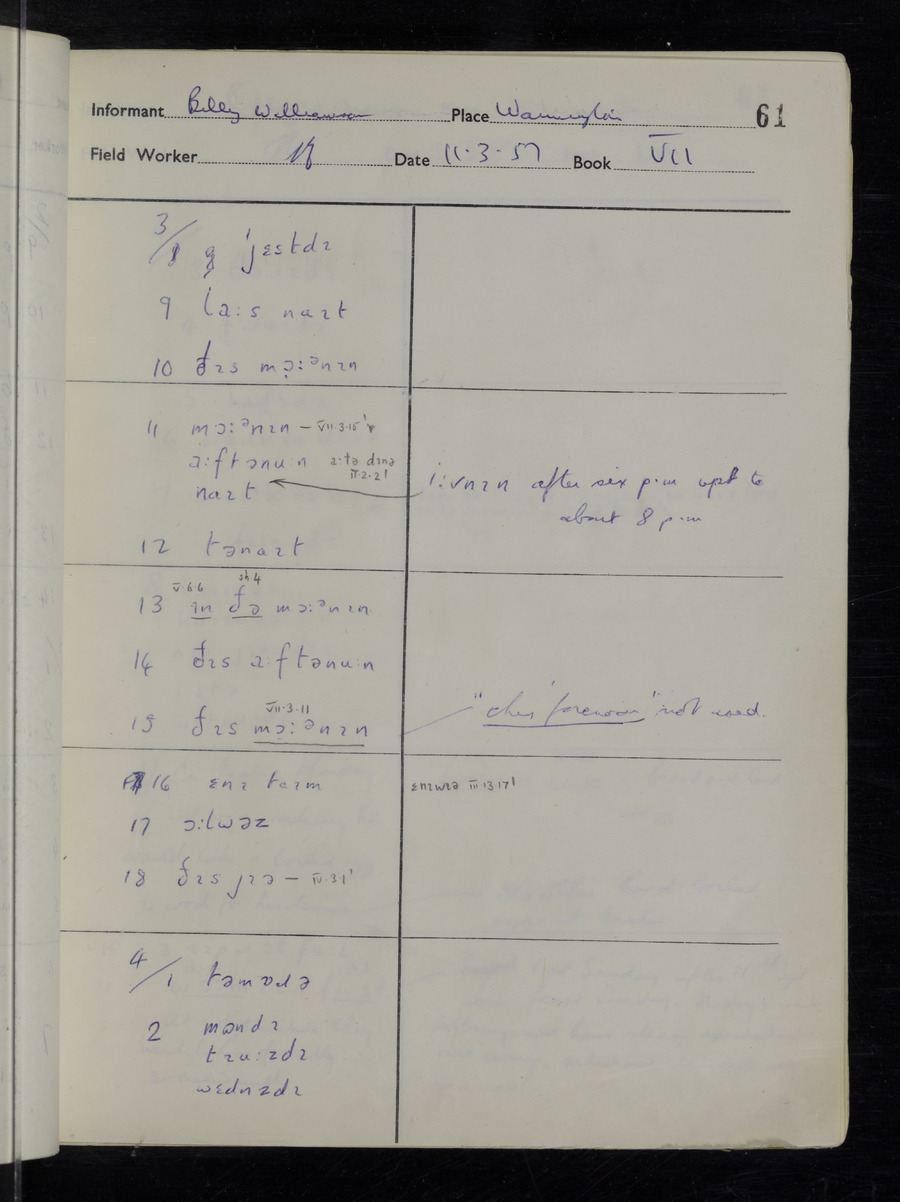 Informant Billy Williamson Place Warrington 61
Field Worker Date 11·3·57 Book VII
3/8 ˈjɛstdɪ
9 la:s naɪt
10 ðɪs mɔ̣:ᵊnɪn
11 mɔ:ᵊnɪn – VII·3·15¹
a:ftənu:n a:tə dɪnə
VII·2·2¹
naɪt i:vnɪn after six p·m upt to
about 8 p·m
12 tənaɪt
V·6·6 sh.4
13 ɪn ðə mɔ:ᵊnɪn
14 ðɪs a:ftənu:n
VII·3·11
15 ðɪs mɔ:ᵊnɪn "this forenoon" not used.
16 ɛnɪ taɪm ɛnɪwɪə III·13·17¹
17 ɔ:lwəz
18 ðɪs jɪə – IV·3·1¹
4/1 təmɒɹə
2 mʊndɪ
tɪu:zdɪ
wɛdnzdɪ